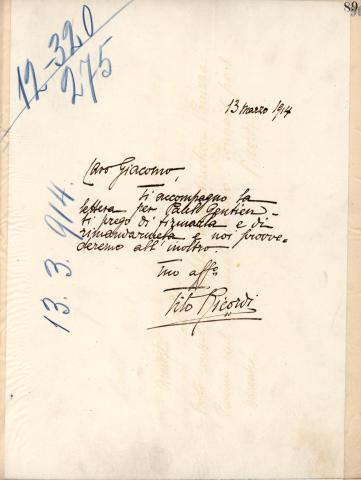 89
12-320
275
13 Marzo 914
Caro Giacomo,
Ti accompagno la
lettera per
ti prego di firmarla e di
rimandarmela e noi provve-
deremo all' inoltro.
Tuo affº
Tito Ricordi
13. 3. 914.